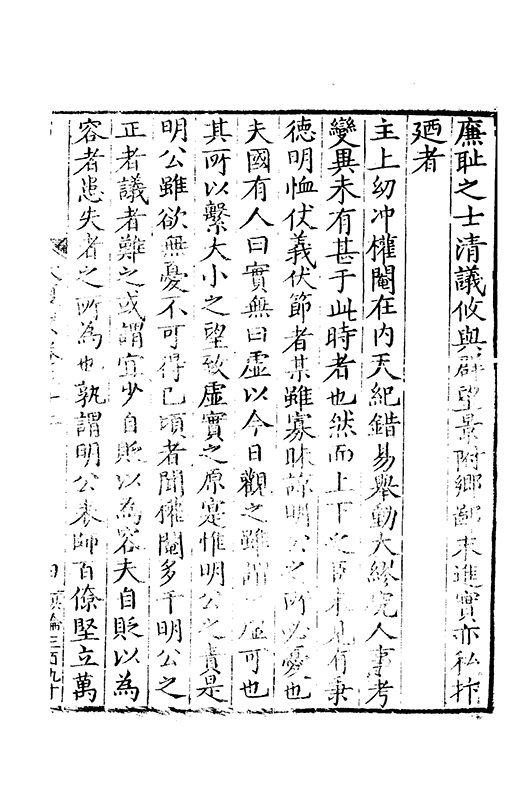 廉耻之士清議攸與群望景附鄉鄙末進實亦私抃
廼者
主上幼冲權閹在內天紀錯易舉動大繆究人事考
變異未有甚于此時者也然而上下之 未見有秉
德明恤伏義伏節者某雖寡昧諒明公之所必憂也
夫國有人曰實無曰虛以今日觀之雖謂之虛可也
其所以繫大小之望致虛實之原寔惟明公之責是
明公雖欲無憂不可得已頃者聞權閹多干明公之
正者議者難之或謂宜少自貶以為容夫自貶以為
容者患失者之所為也孰謂明公表師百僚堅立萬